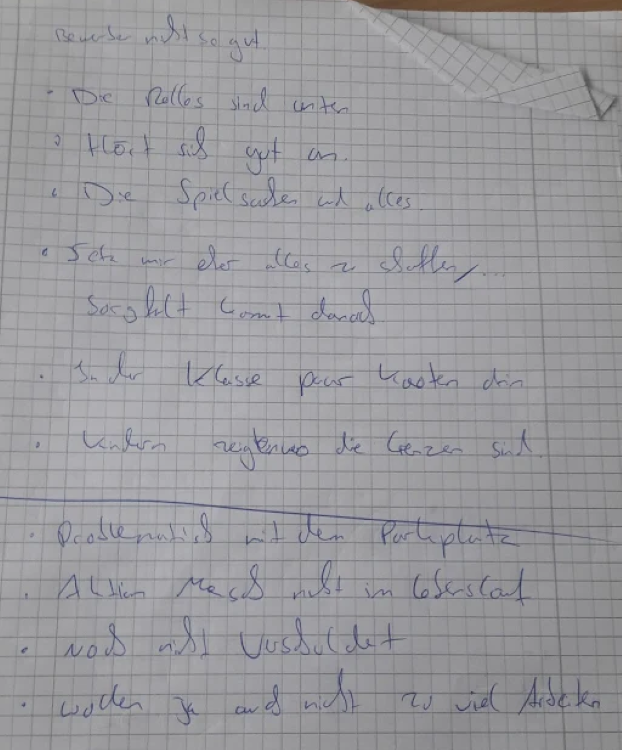 Bewerber nicht so gut
• Die Rollos sind unten
• Hört sich gut an.
• Die Spielsachen und alles.
• Setz mir eher alles zu schaffen, ...
Sorgfalt kommt danach
• In der Klasse paar Kasten drin
• Kindern zeigen wo die Grenzen sind.
• Problematisch mit dem Parkplatz
• Aktion Mensch nicht im Lebenslauf
• Noch nicht Verschuldet
• wollen ja auch nicht zu viel Arbeiten